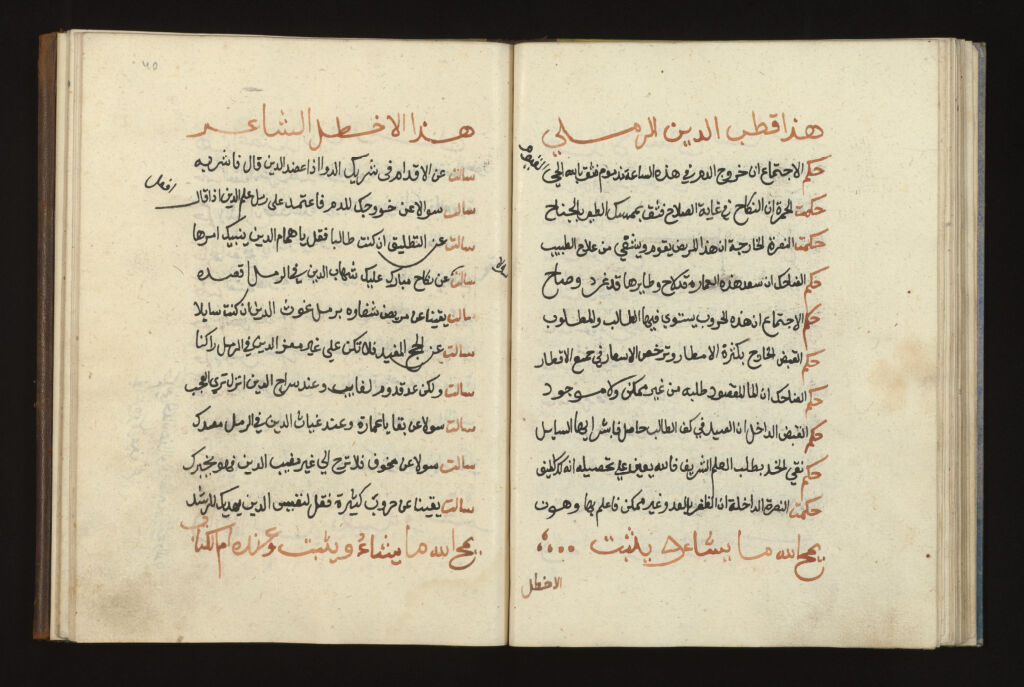 هذا قطب الدين الرملي
حكم الاجتماع ان خروج الدم في هذه الساعة مذموم فثق بالله الحي القيوم
حكمت الحمرة ان النكاح في غاية الصلاح فثق بمسك الطير بالجناح
حكمت النصرة الخارجة ان هذا المريض يقوم ويشتفي من علاج الطبيب
حكم الضاحك ان سعد هذه العمارة قد لاح وطايرها قد غرد وصاح
حكم الاجتماع ان هذه الحروب يستوي فيها الطالب والمطلوب
حكم القبض الخارج بكثرة الامطار وترخص الاسعار في جميع الاقطار
حكم الضاحك ان المال المقصود طلبه من غير ممكن ولا موجود
حكم القبض الداخل ان الصيد في كف الطالب حاصل فابشر ايها السايل
حكم نقي الخد بطلب العلم الشريف فالله يعين علي تحصيله انه
حكمت النصرة الداخلة ان الظفر بالعدو غير ممكن فاعلم بها وهون
يمح الله ما يشاء ويثبت
الاخطل
٤٥
هذا الاخطل الشاعر
سالت عن الاقدام في شريك الدوا اذا عضد الدين قال فاشربه
سالت سوالا عن خروجك للدم فاعتمد على رمل علم الدين اذا قال افعل
سالت عن التطليق ان كنت طالبا فقل يا همام الدين ينبيك امرها
سالت عن نكاح مبارك عليك شهاب الدين في الرمل اقصده
سالت يقينا عن مريض شفاوه برمل غوث الدين ان كنت سايلا
سالت عن الحج المفيد فلا تكن علي غير معز الدين في الرمل راكنا
سالت ولكن عن قدوم لغايب وعند سراج الدين انزل تري العجب
سالت سولا عن بقايا عمارة وعند غياث الدين في الرمل مقصدك
سالت سولا عن مخوف فلا ترح الي غير مغيب الدين فهو يخبرك
سالت يقينا عن حروب كثيرة فقل لنقيب الدين يهديك للرشد
يمح الله ما يشاء ويثبت وعنده ام الكتاب